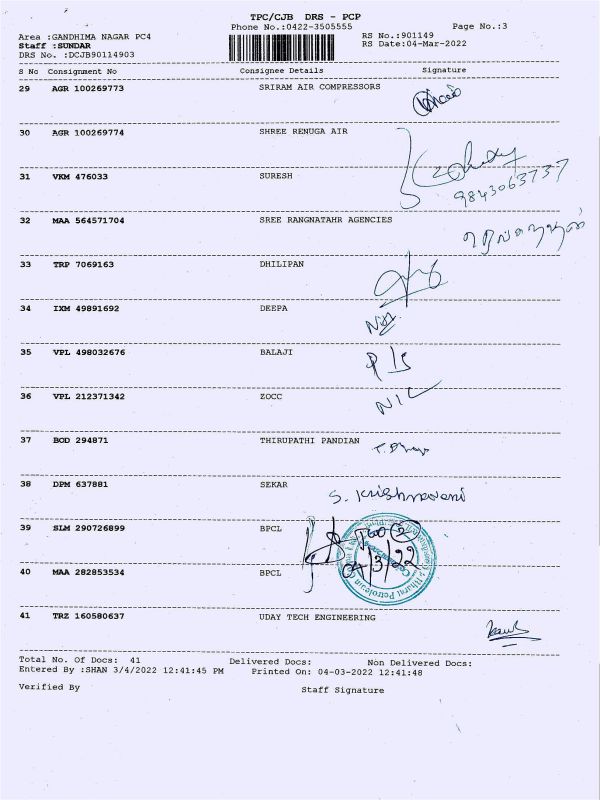 TPC/CJB DRS - PCP
Phone No.:0422-3505555
Page No.:3
Area :GANDHIMA NAGAR PC4
RS No.:901149
Staff :SUNDAR
RS Date:04-Mar-2022
DRS No. :DCJB90114903
S No Consignment No Consignee Details Signature
29 AGR 100269773 SRIRAM AIR COMPRESSORS
30 AGR 100269774 SHREE RENUGA AIR
31 VKM 476033 SURESH
9843063737
32 MAA 564571704 SREE RANGNATAHR AGENCIES
33 TRP 7069163 DHILIPAN
34 IXM 49891692 DEEPA
35 VPL 498032676 BALAJI
36 VPL 212371342 ZOCC
NIC
37 BOD 294871 THIRUPATHI PANDIAN
38 DPM 637881 SEKAR
S. Krishnaveni
39 SLM 290726899 BPCL
40 MAA 282853534 BPCL
04/3/22
41 TRZ 160580637 UDAY TECH ENGINEERING
Total No. Of Docs: 41 Delivered Docs: Non Delivered Docs:
Entered By :SHAN 3/4/2022 12:41:45 PM Printed On: 04-03-2022 12:41:48
Verified By Staff Signature